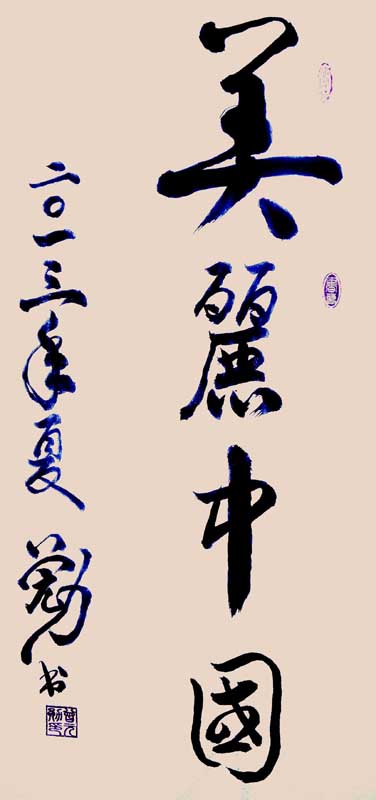 美麗中國
二〇一三年夏
书